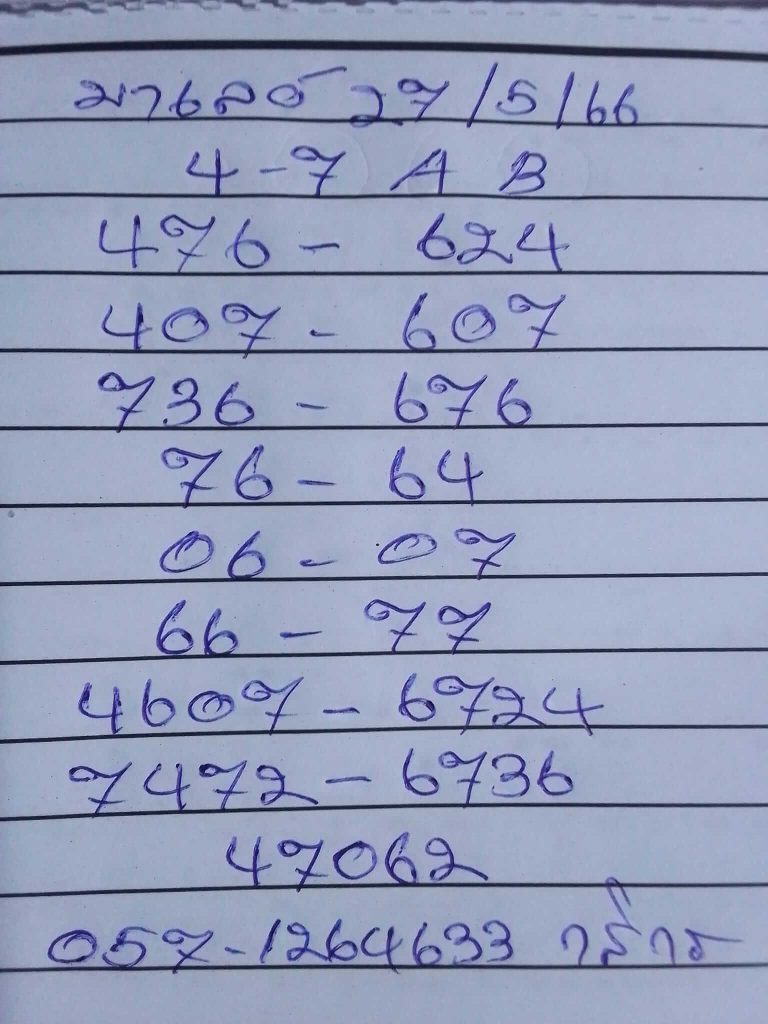 มาเลย์ 27/5/66
4-7 A B
476 - 624
407 - 607
736 - 676
76 - 64
06 - 07
66 - 77
4607 - 6724
7472 - 6736
47062
057-1264633